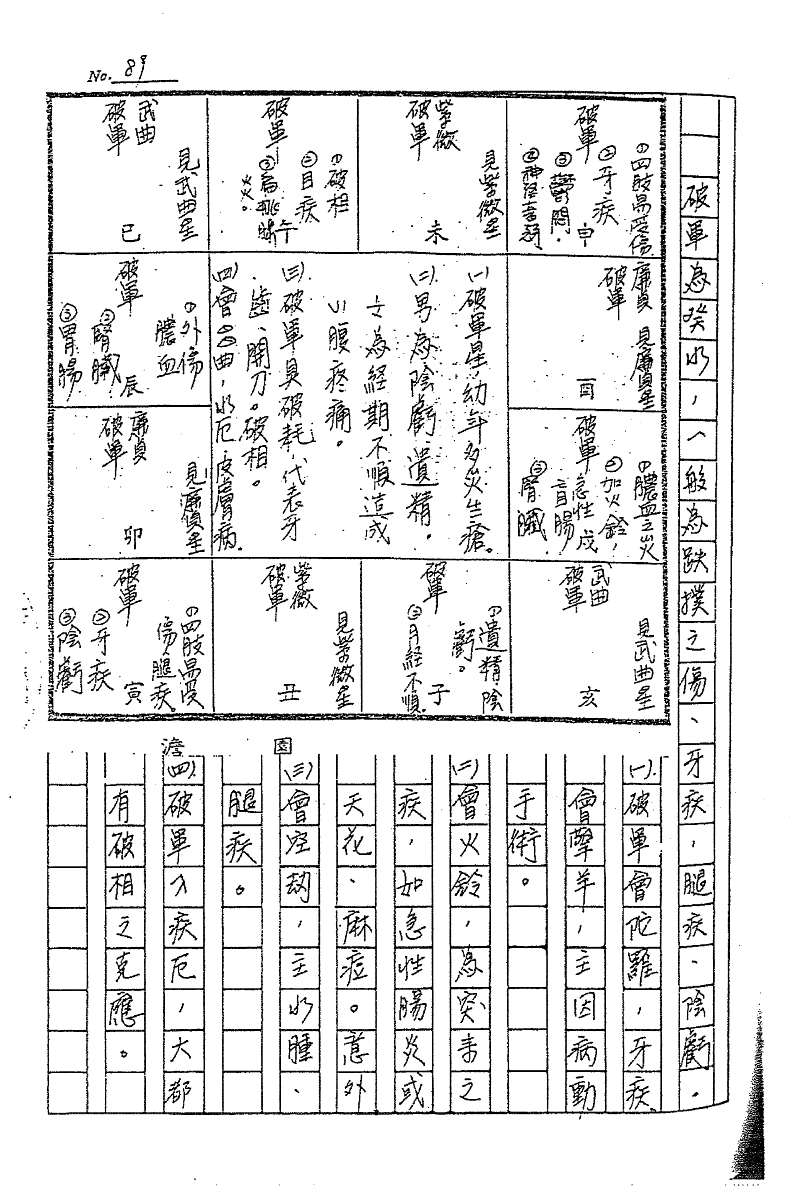 No. 89
破軍為癸水，一般為跌撲之傷、牙疾，腿疾、陰虧。
破軍
①四肢易受傷
②牙疾
③鬱悶，
申
紫微
破軍
見紫微星
未
破軍
①破相
②目疾
午
武曲
破軍
見武曲星
巳
廉貞
破軍
見廉貞星
酉
㈠破軍星，幼年多災生瘡。
㈡男為陰虧，遺精。
女為經期不順造成
小腹疼痛。
㈢破軍具破耗，代表牙
齒、開刀。破相。
㈣會昌曲，水厄，皮膚病。
破軍
①外傷
膿血
②腎臟
③胃腸
辰
破軍
①膿血之災
②加火鈴，
急性
盲腸
③腎臟
戌
廉貞
破軍
見廉貞星
卯
武曲
破軍
見武曲星
亥
破軍
①遺精，陰
虧。
②月經不順
子
紫微
破軍
見紫微星
丑
破軍
①四肢易受
傷，腿疾。
②牙疾
③陰虧
寅
園
澹
㈠．破軍會陀羅，牙疾
會擎羊，主因病動
手術。
㈡會火鈴，為突來之
疾，如急性腸炎或
天花、麻痘。意外
㈢會空劫，主水腫、
腿疾。
㈣．破軍入疾厄，大都
有破相之克應。